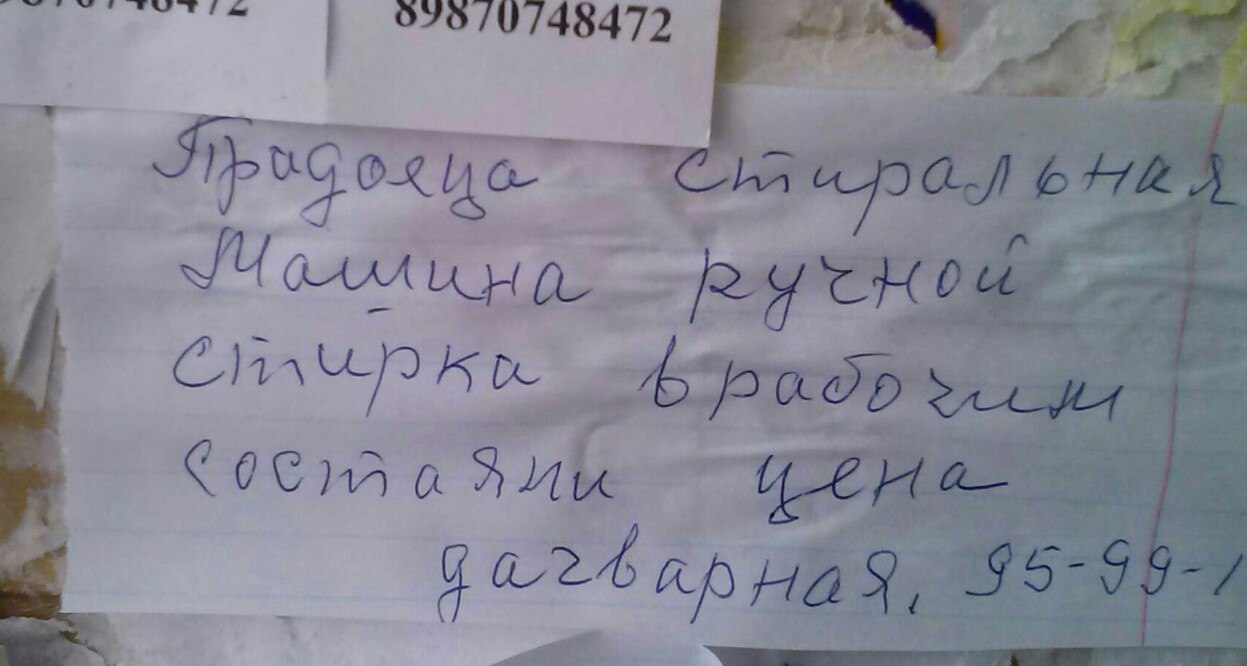 89870748472
Прадояца стиральная
Машина ручной
стирка в рабочим
состаяни цена
дагварная, 95-99-1